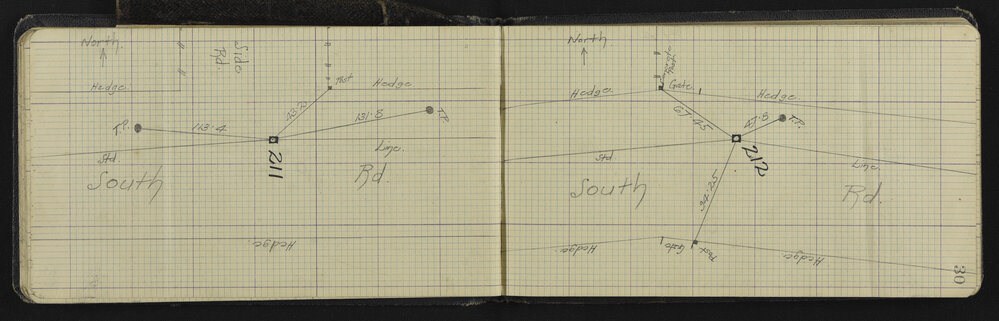 North.
Side
Rd.
Post
Hedge.
Hedge
43.2
T.P.
113.4
131.8
T.P.
211
Std.
Line
South Rd.
Hedge
North.
Post
Gate
Hedge
Hedge.
67.45
47.8
T.P.
212
Std
Line.
South Rd.
34.25
Hedge
Gate
Post
Hedge
30